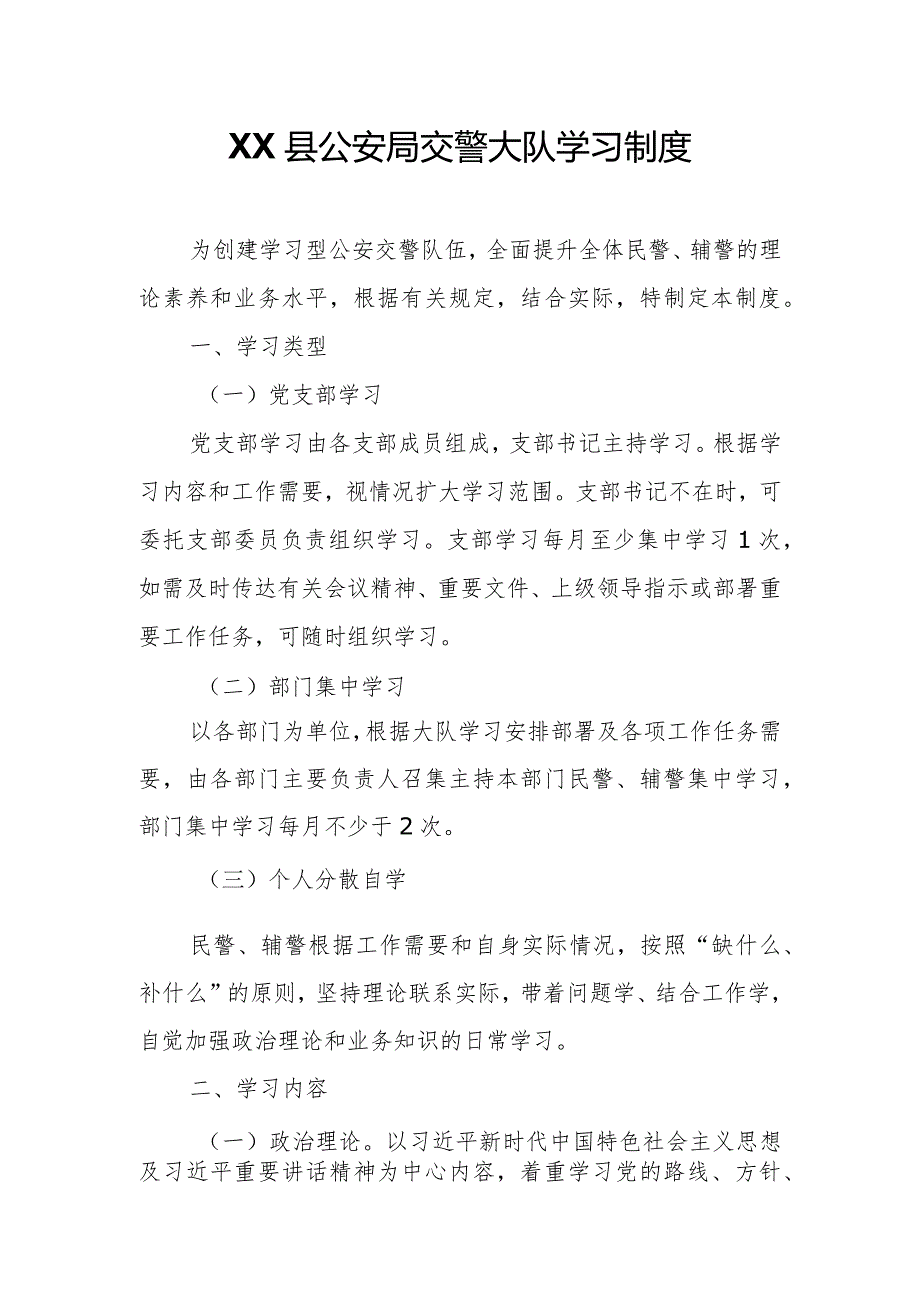 XX 县公安局交警大队学习制度
为创建学习型公安交警队伍，全面提升全体民警、辅警的理
论素养和业务水平，根据有关规定，结合实际，特制定本制度。
一、学习类型
（一）党支部学习
党支部学习由各支部成员组成，支部书记主持学习。根据学
习内容和工作需要，视情况扩大学习范围。支部书记不在时，可
委托支部委员负责组织学习。支部学习每月至少集中学习 1 次，
如需及时传达有关会议精神、重要文件、上级领导指示或部署重
要工作任务，可随时组织学习。
（二）部门集中学习
以各部门为单位，根据大队学习安排部署及各项工作任务需
要，由各部门主要负责人召集主持本部门民警、辅警集中学习，
部门集中学习每月不少于 2 次。
（三）个人分散自学
民警、辅警根据工作需要和自身实际情况，按照“缺什么、
补什么”的原则，坚持理论联系实际，带着问题学、结合工作学，
自觉加强政治理论和业务知识的日常学习。
二、学习内容
（一）政治理论。以习近平新时代中国特色社会主义思想
及习近平重要讲话精神为中心内容，着重学习党的路线、方针、